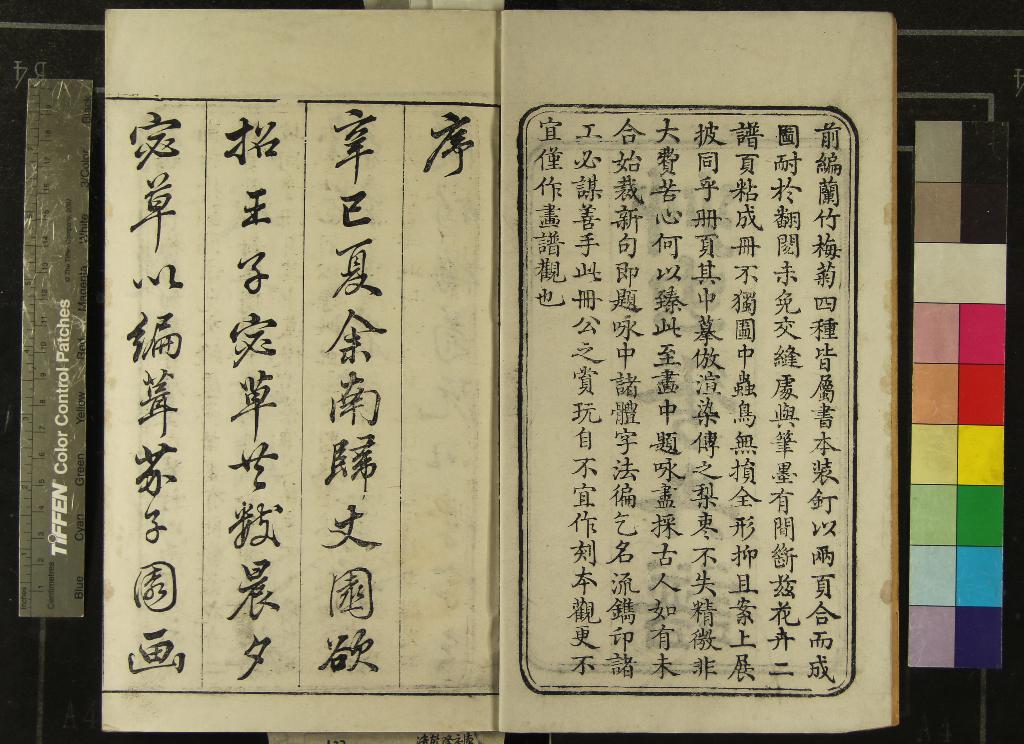 前編蘭竹梅菊四種皆屬書本裝釘以兩頁合而成
圖耐於翻閱未免交縫處與筆墨有間斷茲花卉二
譜頁粘成冊不獨圖中蟲鳥無損全形抑且案上展
披同乎冊頁其中摹倣渲染傳之梨棗不失精微非
大費苦心何以臻此至畫中題咏盡採古人如有未
合始裁新句即題咏中諸體字法徧乞名流鐫印諸
工必謀善手此冊公之賞玩自不宜作刻本觀更不
宜僅作畫譜觀也
序
辛巳夏余南歸丈園欲
招王子宓草共數晨夕
宓草以編葺芥子園画
TIFFEN Color Control Patches
Inches
Centimetres
Blue
Cyan
Green
Yellow
Red
Magenta
White
3/Color
Black
B4
A4